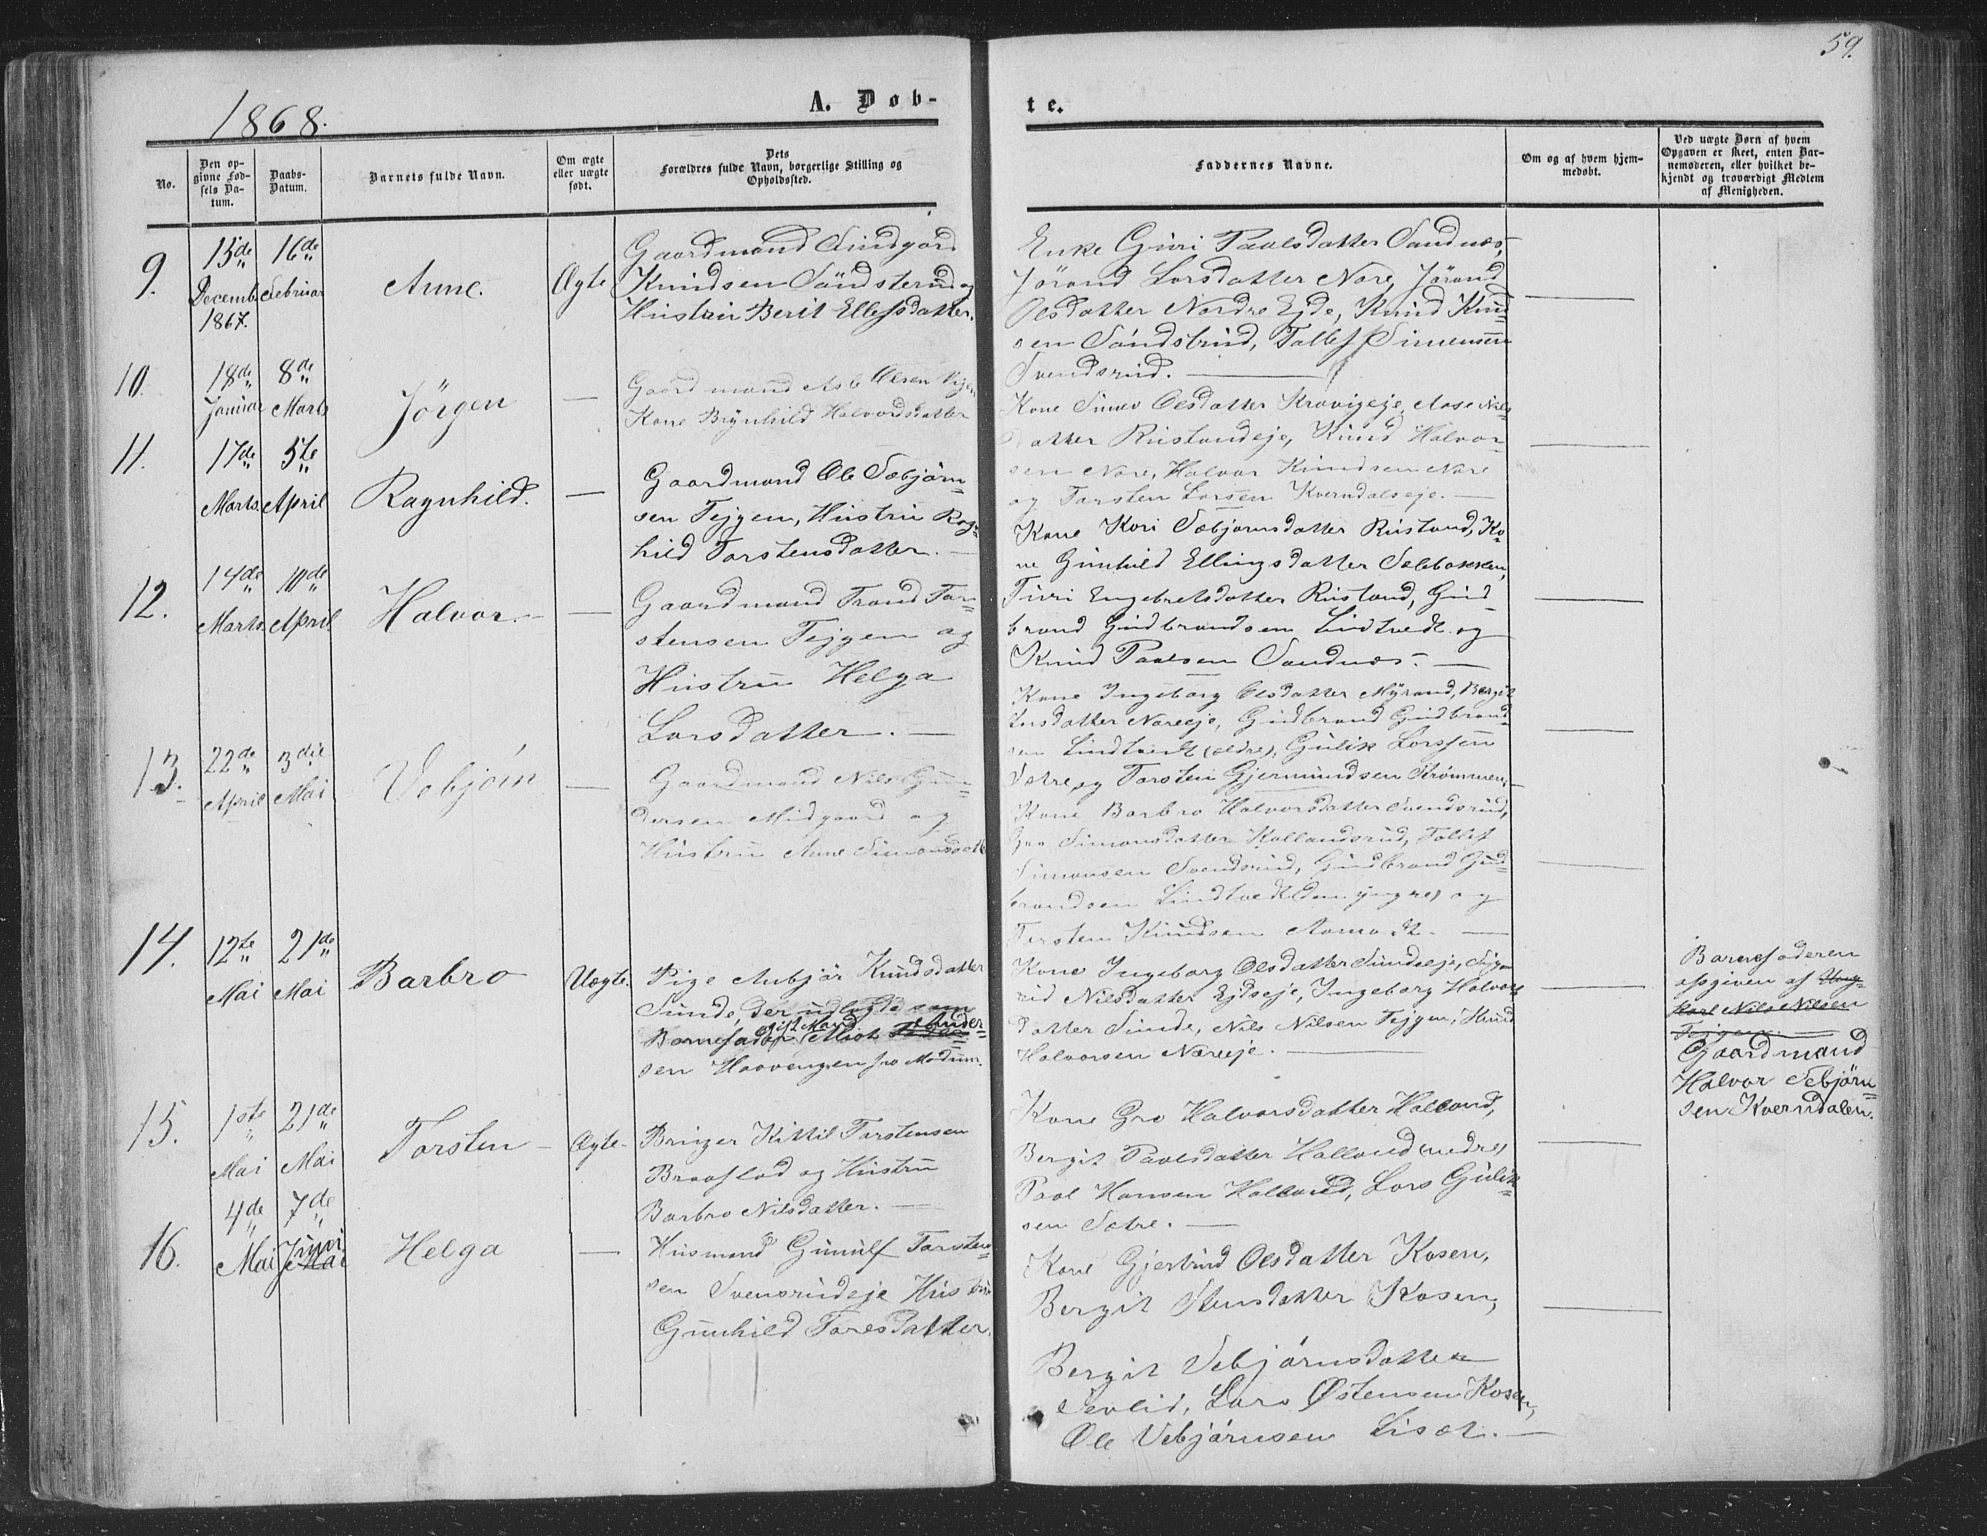 59.
1868.
A. Døb-
te.
No.
Den op-
givne Fød-
sels Da-
tum.
Daabs-
Datum.
Barnets fulde Navn.
Om ægte
eller uægte
født.
Dets
Forældres fulde Navn, borgerlige Stilling og
Opholdssted.
Faddernes Navne.
Om og af hvem hjem-
medøbt.
Ved uægte Børn af hvem
Opgaven er skeet, enten Bar-
nemoderen, eller hvilket be-
kjendt og troværdigt Medlem
af Menigheden.
9.
15de
Decemb
1867.
16de
Februar
Anne.
Ægte
Gaardmand
Knudsen Søndsterud og
Hustru Berit Ellefsdatter.
Enke Guri Paalsdatter Sandnæs,
Jørand Larsdatter Nore, Jørand
Olsdatter Nordre Ejde, Knud Knud-
sen Søndstrud, Tollef Simensen
Svendsrud. —
10.
18de
Januar
8de
Marts
Jörgen
—
Gaardmand Asle Olsen
Kone Brynhild Halvordsdatter
Kone Olsdatter Kravigeje, Aase Nils-
datter Rustandeje, Knud Halvor-
sen Nore, Halvor Knudsen Nore
og Torsten Larsen Kverndalseje. —
11.
17de
Marts.
5te
April
Ragnhild.
—
Gaardmand Ole Sebjørn-
sen Tejgen, Hustru Rag-
hild Torstensdatter. —
Kone Kari Sebjørnsdatter Rustand, Ko-
ne Gunhild Ellingsdatter Selbakken,
Turi Engebretsdatter Rustand, Gud-
brand Gudbrandsen Lindtvedt og
Knud Paalsen Sandnæs. —
12.
14de
Marts.
10de
April
Halvor. —
—
Gaardmand Trond Tor-
stensen Tejgen og
Hustru Helga
Larsdatter. —
Kone Ingeborg Olsdatter Myrand, Bergit
Larsdatter Noreeje, Gudbrand Gudbrand-
sen Lindtvedt (ældre), Gulik Larssen
Sætre og Torsten Gjermundsen Strømmen, —
13.
22de
April
3die
Mai
Vebjørn
—
Gaardmand Nils Gun-
dersen Midgaard og
Hustru Anne Simonsdatt
Kone Barbro Halvorsdatter Svendsrud,
Gro Simonsdatter Kollandsrud, Tollef
Simonsen Svendsrud, Gudbrand Gud-
brandsen Lindtvedt (den yngre) og
Torsten Knudsen
14.
12te
Mai
21de
Mai
Barbro
Uægte.
Pige Aabjør Knudsdatter
Sunde, der udlagde som
Barnefader gift Mand Ander-
sen Haavengen fra Modum.
Kone Ingeborg Olsdatter Sundeeje, Sig-
rid Nilsdatter Ejdseje, Ingeborg Halvors-
datter Sunde, Nils Nilsen Tejgen, Knud
Halvorsen Noreeje. —
Barnefaderen
opgiven af Ung-
karl Nils Nilsen
Tejgen. —
Gaardmand
Halvor Sebjørn-
sen Kverndalen.
15.
1ste
Mai
21de
Mai
Torsten —
Ægte.
Bruger Kittil Torstensen
Braaflod og Hustru
Barbro Nilsdatter. —
Kone Gro Halvorsdatter Halland,
Bergit Paalsdatter Halland (nedre)
Paal Hansen Halland, Lars Gulik-
sen Sætre. —
16.
4de
Mai
7de
Juni
Mai
Helga
—
Husmand Gunulf Torsten-
sen Svensrudeje Hustru
Gunhild Toresdatter.
Kone Gjertrud Olsdatter Kosen,
Bergit Stensdatter Kosen,
Bergit Vebjørnsdatter
Sevlid, Lars Østensen Kosen,
Ole Vebjørnsen Liset. —